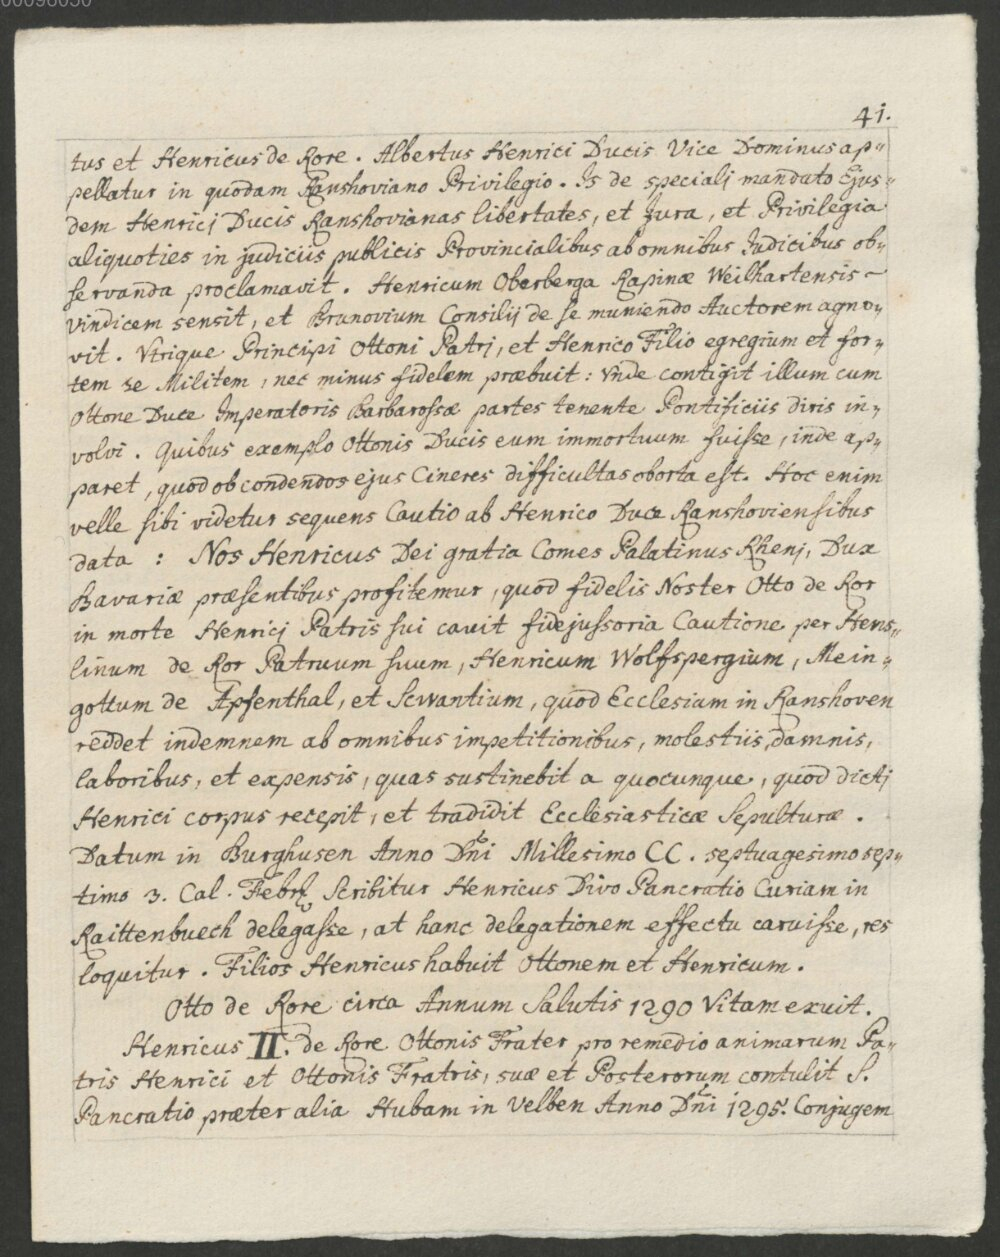 00096050
41.
tus et Henricus de Rore. Albertus Henrici Ducis Vice Dominus ap„
pellatur in quodam Ranshoviano Privilegio. Is de speciali mandato Ejus„
dem Henrici Ducis Ranshovianas libertates, et Jura, et Privilegia
aliquoties in judiciis publicis Provincialibus ab omnibus Judicibus ob„
servanda proclamavit. Henricum Oberberga Rapinæ Weilhartensis
vindicem sensit, et Brunovium Consilij de se muniendo Auctorem agno„
vit. Vtrique Principi Ottoni Patri, et Henrico Filio egregium et for„
tem se Militem, nec minus fidelem præbuit: Vnde contigit illum cum
Ottone Duce Imperatoris Barbarossæ partes tenente Pontificiis diris in„
volvi. Quibus exemplo Ottonis Ducis eum immortuum fuisse, inde ap„
paret, quod ob condendos ejus Cineres difficultas oborta est. Hoc enim
velle sibi videtur sequens Cautio ab Henrico Duce Ranshoviensibus
data : Nos Henricus Dei gratia Comes Palatinus Rheni, Dux
Bavariæ præsentibus profitemur, quod fidelis Noster Otto de Ror
in morte Henrici Patris sui cavit fidejussoria Cautione per Hens„
linum de Ror Patruum suum, Henricum Wolfspergium, Mein„
gottum de Apfenthal, et Scwantium, quod Ecclesiam in Ranshoven
reddet indemnem ab omnibus impetitionibus, molestiis, damnis,
laboribus, et expensis, quas sustinebit a quocunque, quod dicti
Henrici corpus recepit, et tradidit Ecclesiasticæ Sepulturæ.
Datum in Burghusen Anno Dñi Millesimo CC. septuagesimo sep„
timo 3. Cal. Febr. Scribitur Henricus Divo Pancratio Curiam in
Raittenbuech delegasse, at hanc delegationem effectu caruisse, res
loquitur. Filios Henricus habuit Ottonem et Henricum.
Otto de Rore circa Annum Salutis 1290 Vitam exuit.
Henricus II. de Rore Ottonis Frater pro remedio animarum Pa„
tris Henrici et Ottonis Fratris, suæ et Posterorum contulit S.
Pancratio præter alia Hubam in Velben Anno Dñi 1295. Conjugem